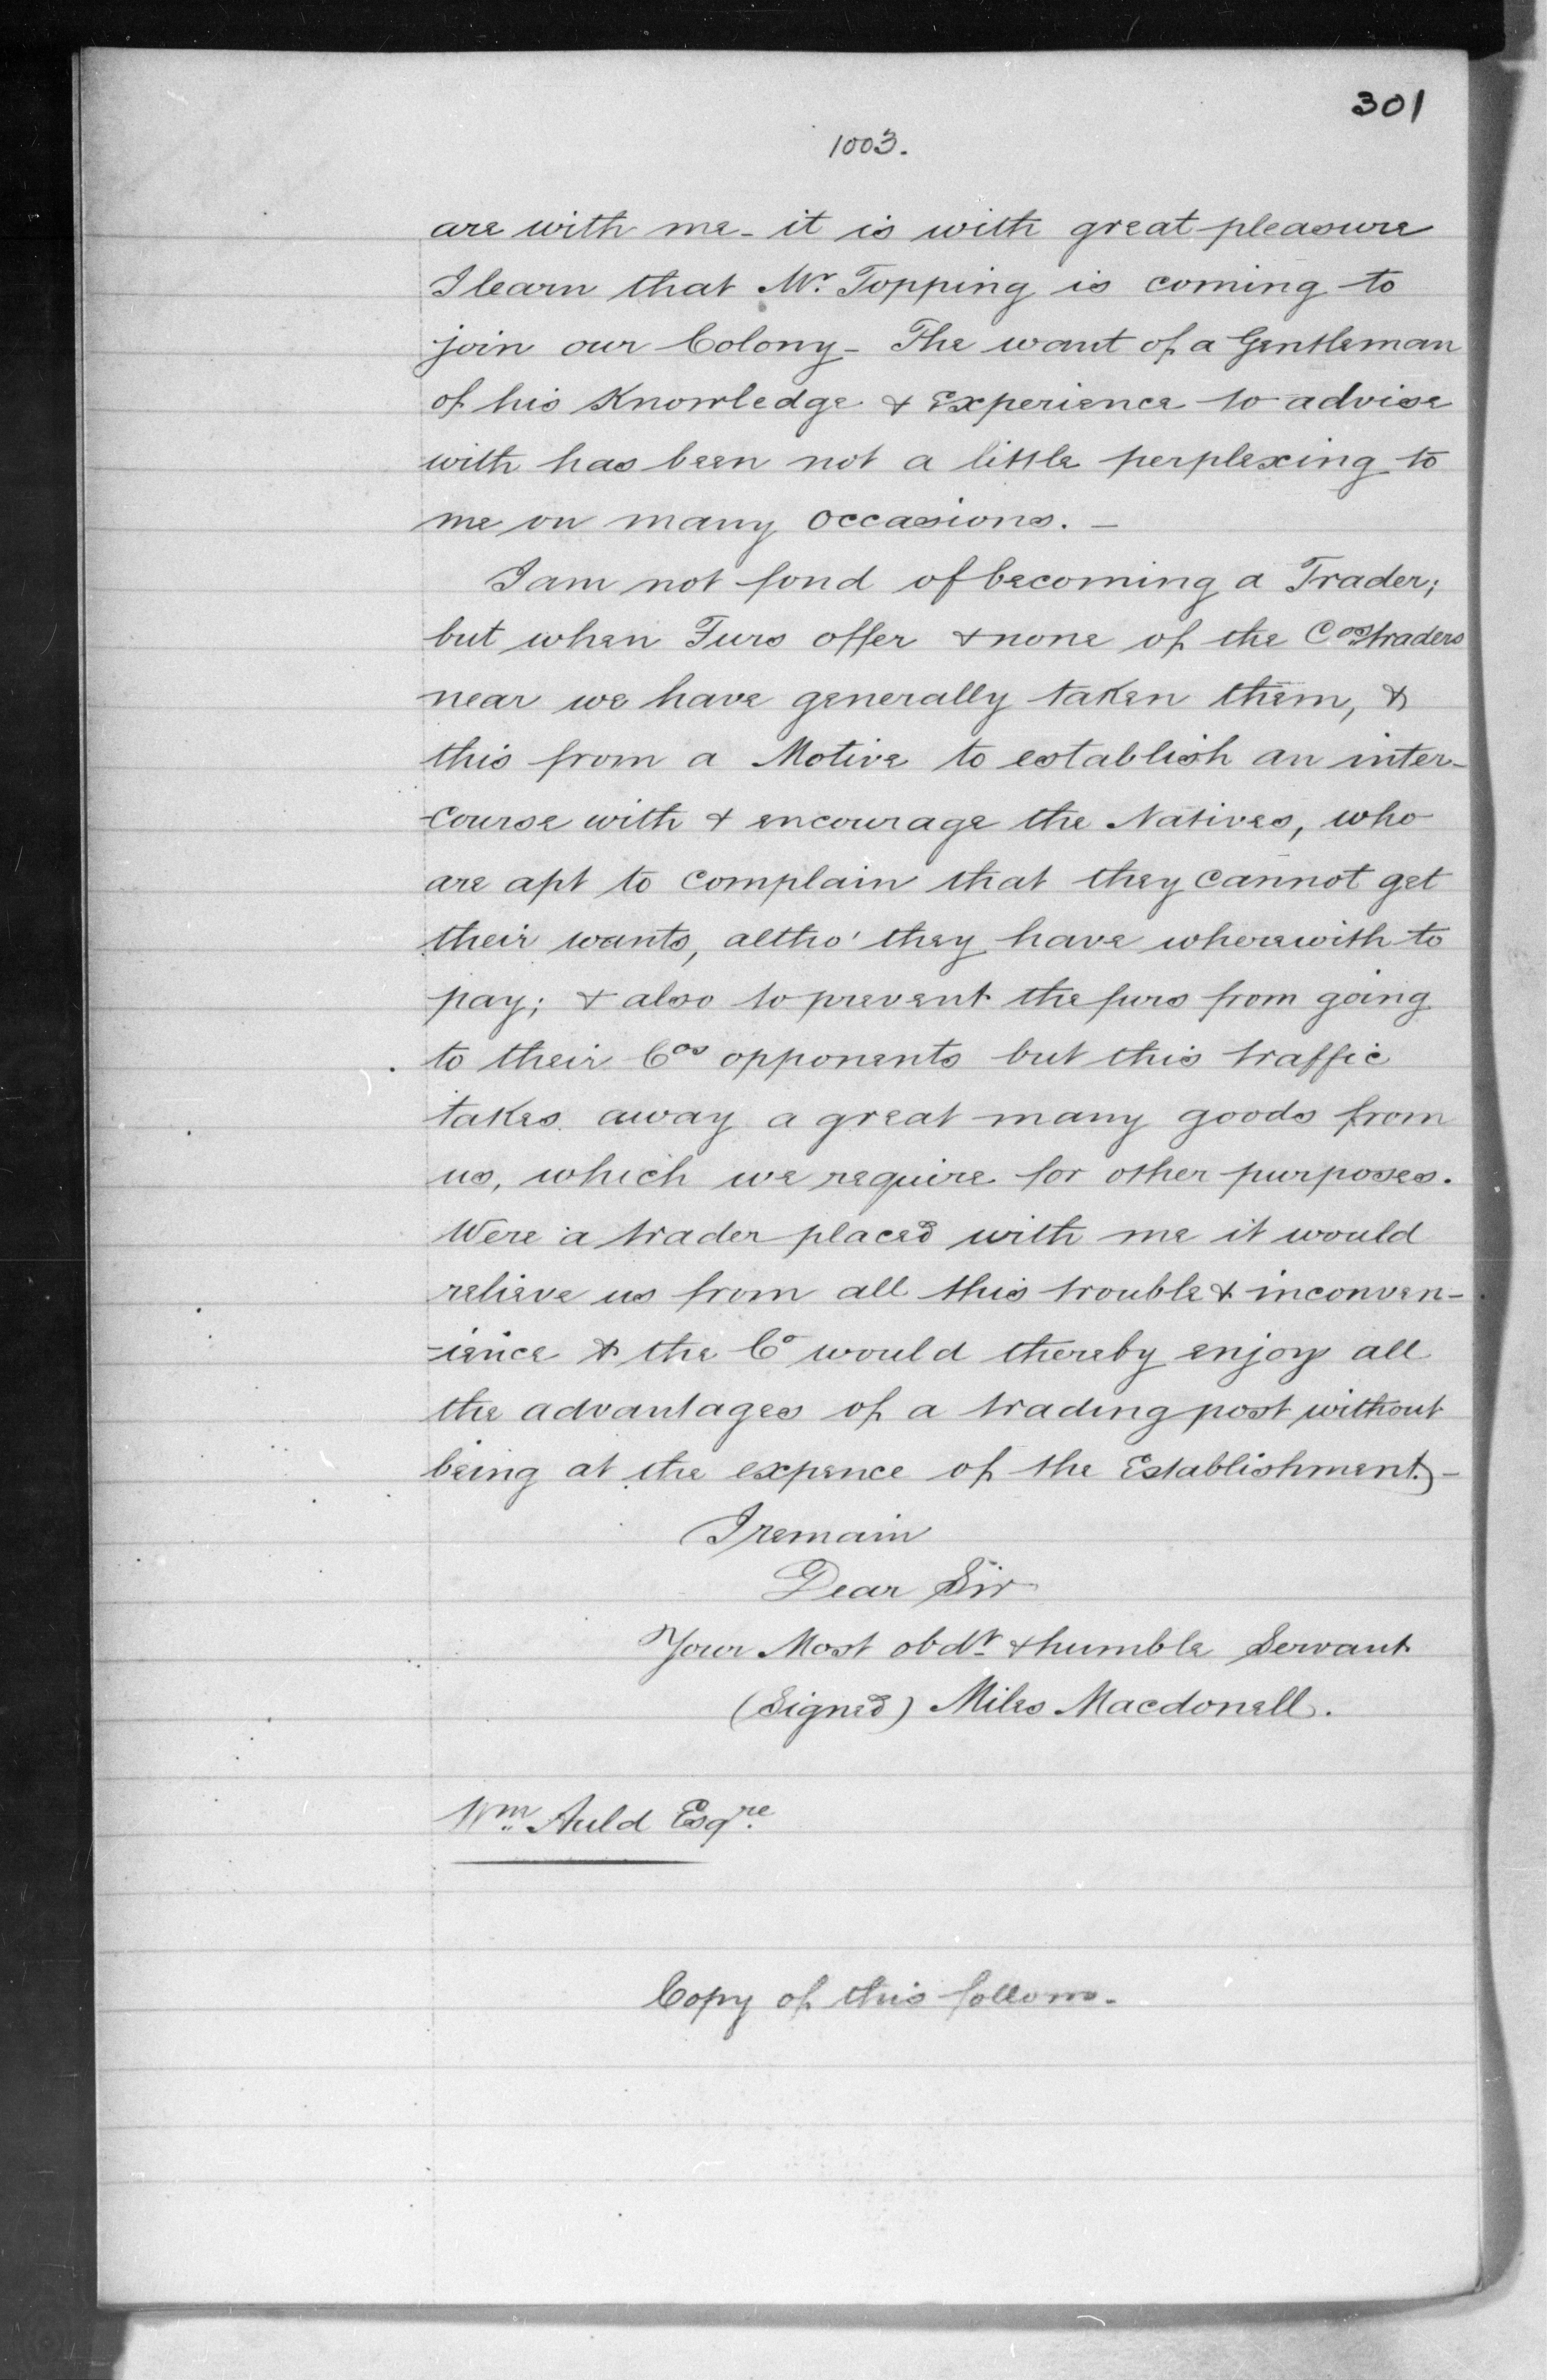 301
1003.
are with me - it is with great pleasure
I learn that Mr. Topping is coming to
join our Colony - The want of a Gentleman
of his Knowledge & Experience to advise
with has been not a little perplexing to
me on many occasions. -
I am not fond of becoming a Trader;
but when Furs offer & none of the Cos traders
near we have generally taken them, &
this from a Motive to establish an inter-
course with & encourage the Natives, who
are apt to complain that they cannot get
their wants, altho' they have wherewith to
pay; & also to prevent the furs from going
to their Cos opponents but this traffic
takes away a great many goods from
us, which we require for other purposes.
Were a trader placed with me it would
relieve us from all this trouble & inconven-
-ience & the Co would thereby enjoy all
the advantages of a trading post without
being at the expence of the Establishment. -
I remain
Dear Sir
Your Most obdt. & humble Servant
(Signed) Miles Macdonell.
Wm. Auld Esqre.
Copy of this follows.